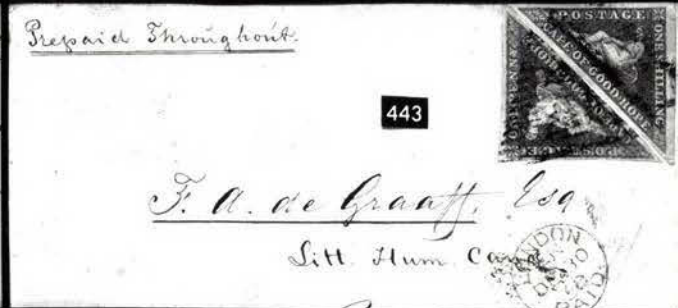 Prepaid Throughout.
POSTAGE
ONE SHILLING
CAPE OF GOOD HOPE
443
F. A. de Graaff, Esq
Litt. Hum. Cand
LONDON
PAID